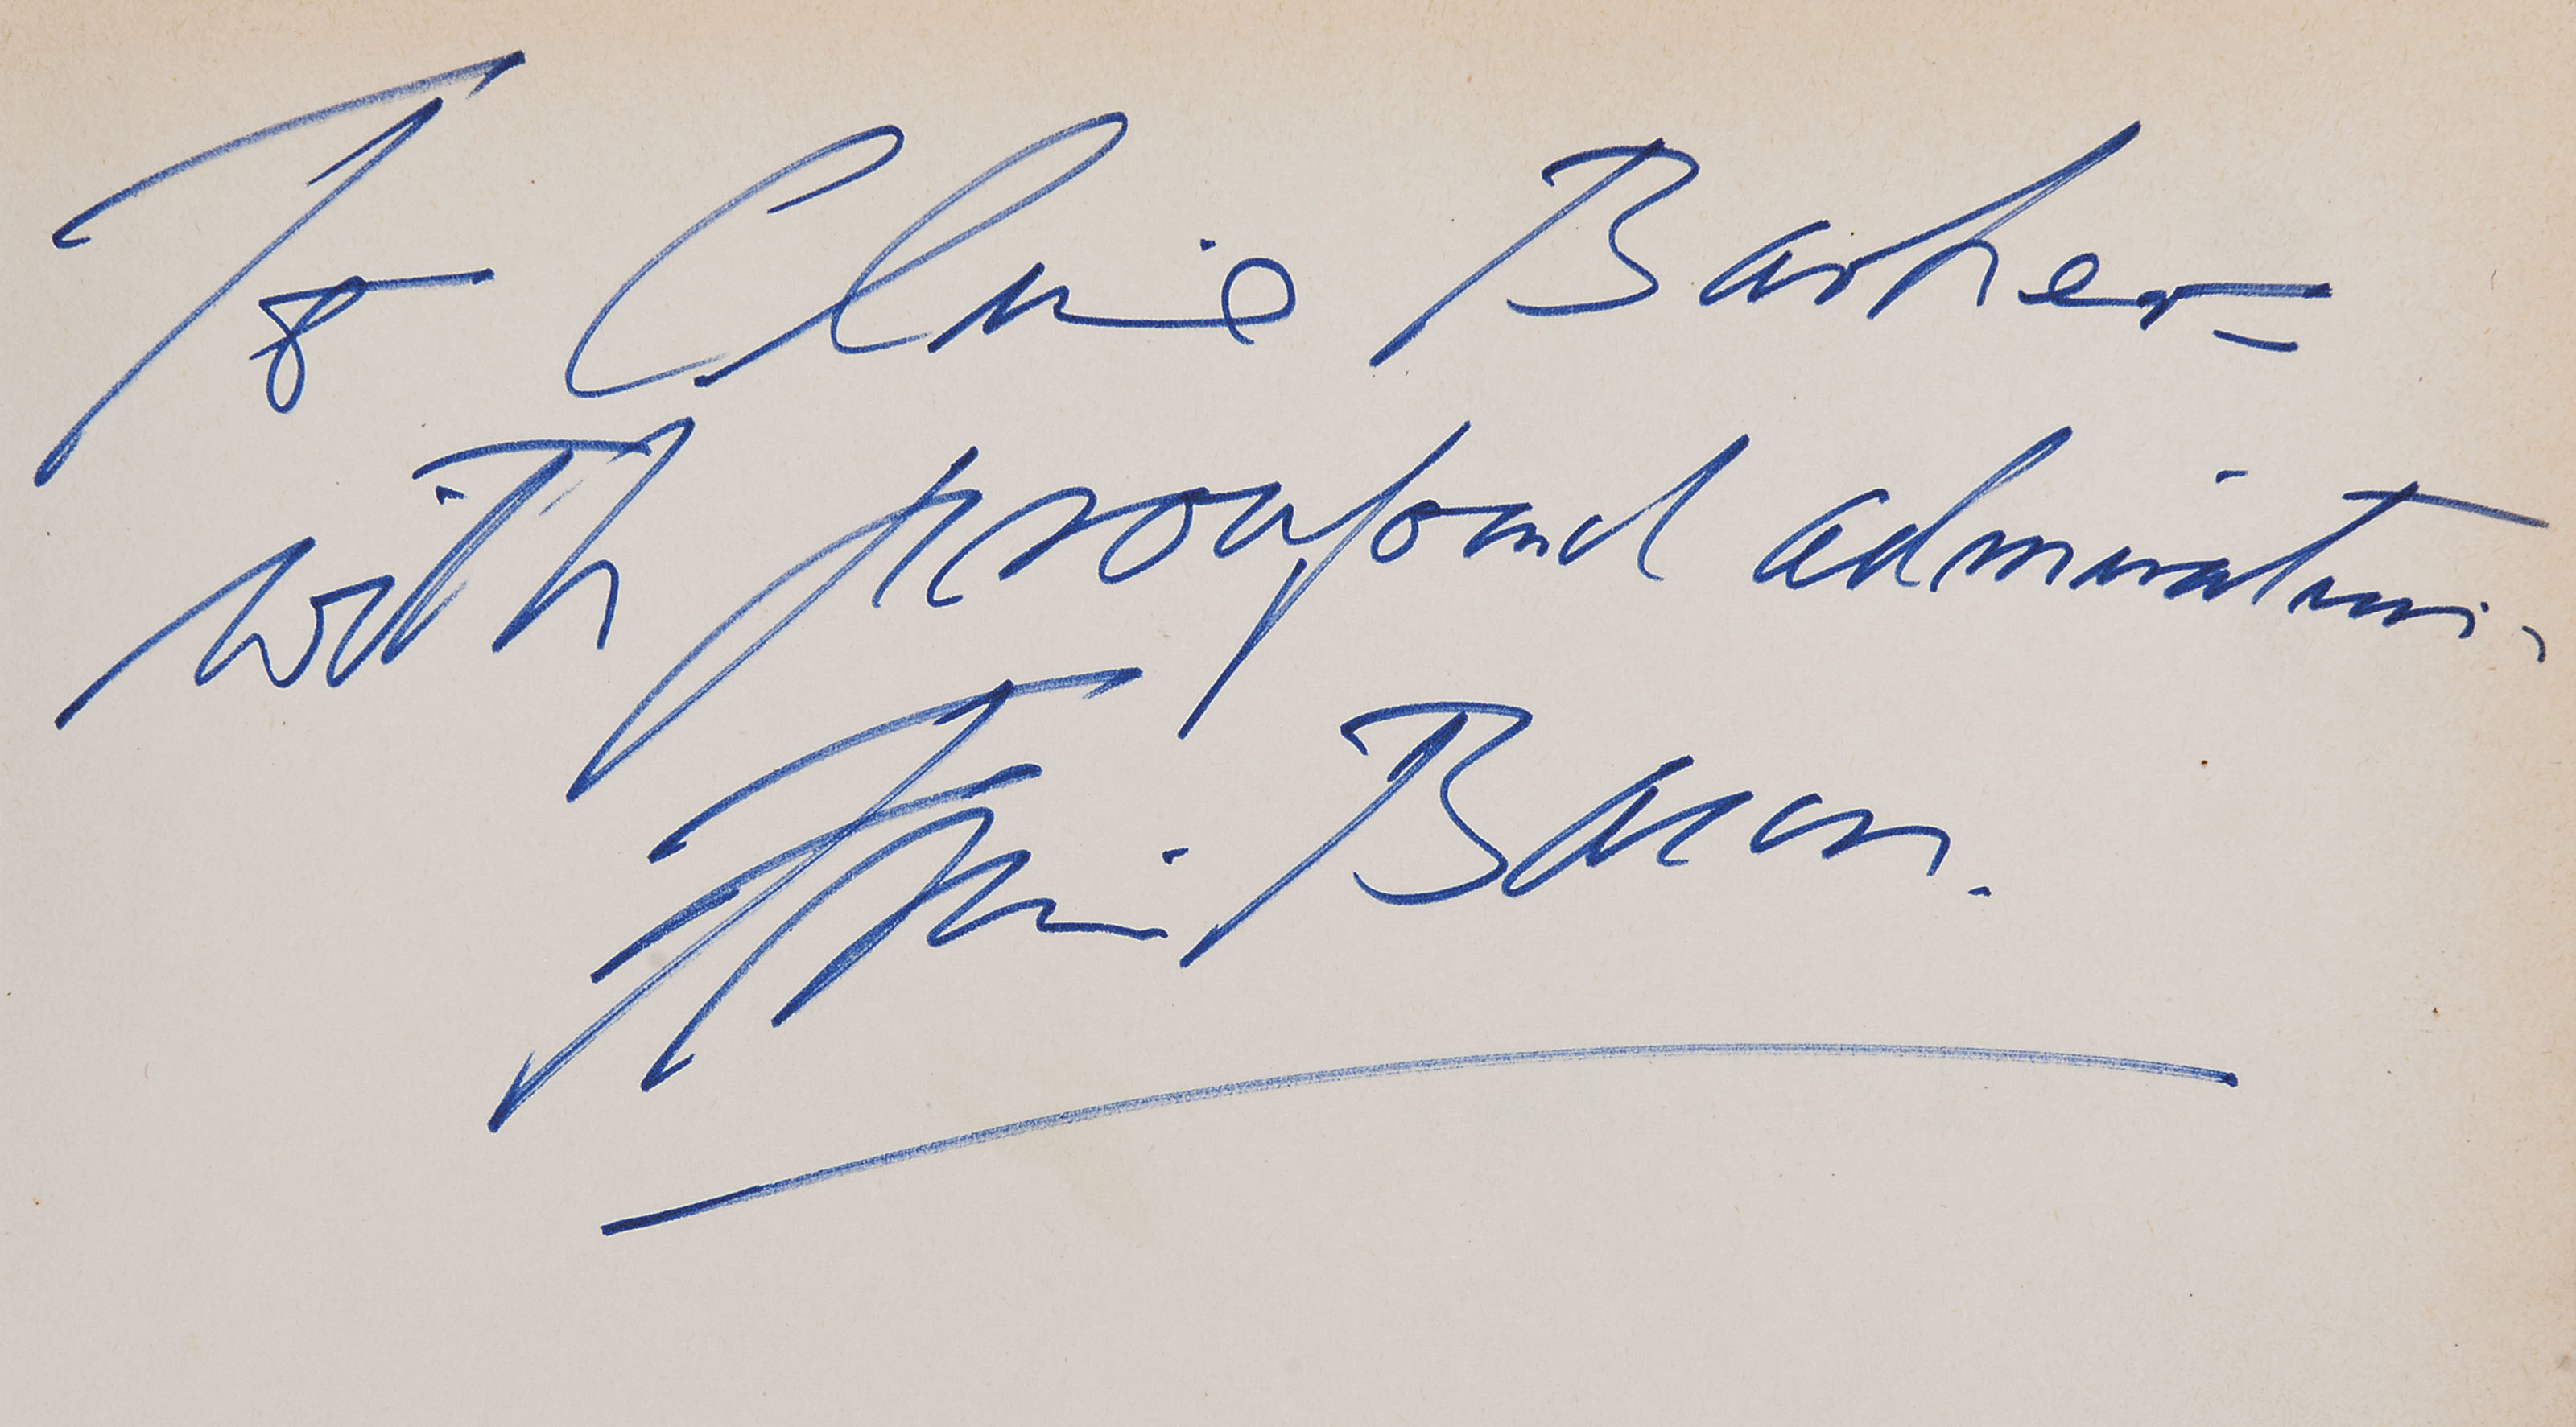 To Clive Barker =
with profound admiration,
Francis Bacon.